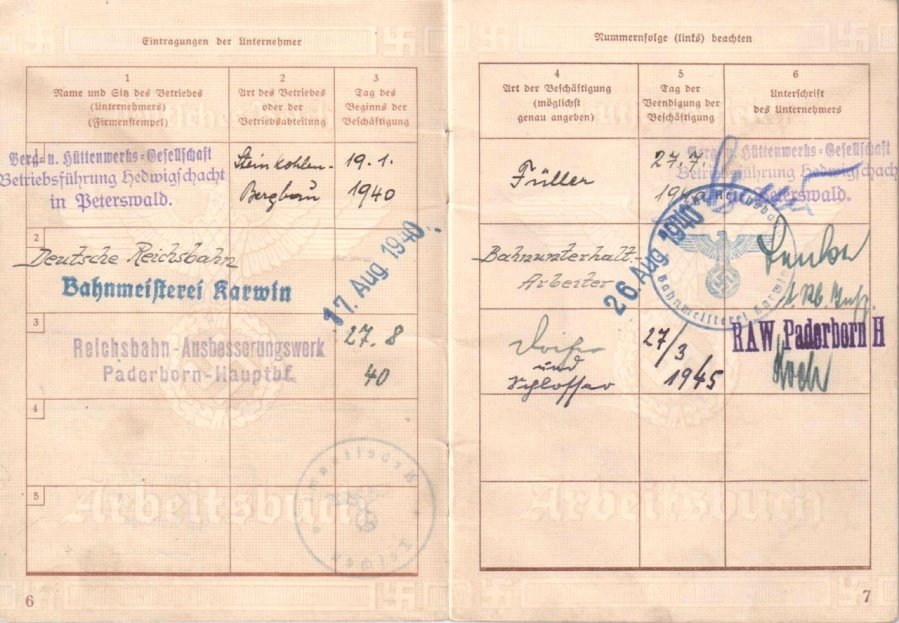 Eintragungen der Unternehmer
1
Name und Sitz des Betriebes
(Unternehmers)
(Firmenstempel)
2
Art des Betriebes
oder der
Betriebsabteilung
3
Tag des
Beginns der
Beschäftigung
1
Berg- u. Hüttenwerks-Gesellschaft
Betriebsführung Hedwigschacht
in Peterswald.
Steinkohlen-
Bergbau
19.1.
1940
2
Deutsche Reichsbahn
Bahnmeisterei Karwin
17 Aug. 1940
3
Reichsbahn-Ausbesserungswerk
Paderborn-Hauptbf.
27.8
40
4
5
Arbeitsbuch
6
Nummernfolge (links) beachten
4
Art der Beschäftigung
(möglichst
genau angeben)
5
Tag der
Beendigung der
Beschäftigung
6
Unterschrift
des Unternehmers
Füller
27.7.
1940
Berg- u. Hüttenwerks-Gesellschaft
Betriebsführung Hedwigschacht
in Peterswald.
Bahnunterhalt.-
Arbeiter
26 Aug. 1940
Deutsche Reichsbahn
Bahnmeisterei Karwin
und
Schlosser
27/3
1945
RAW Paderborn H
Koch
Arbeitsbuch
7